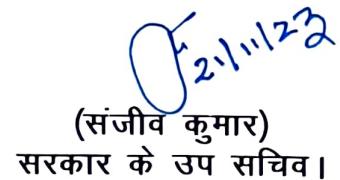 21/11/23
(संजीव कुमार)
सरकार के उप सचिव।